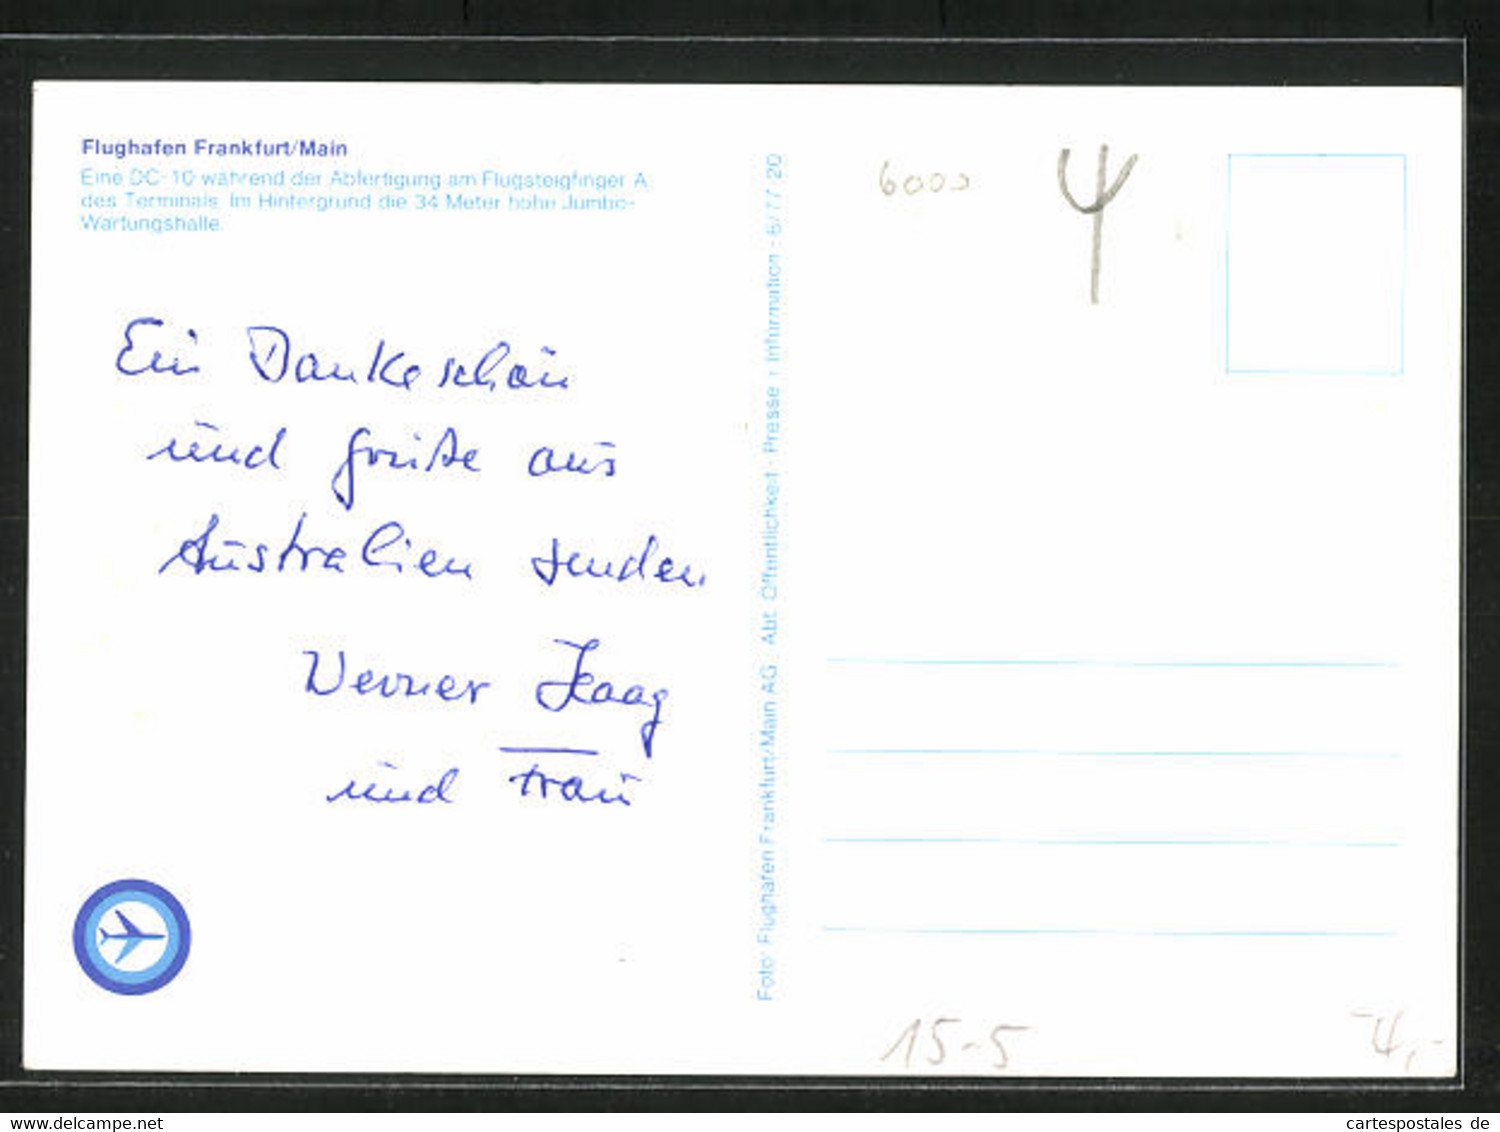 Flughafen Frankfurt/Main
Eine DC-10 während der Abfertigung am Flugsteigfinger A
des Terminals. Im Hintergrund die 34 Meter hohe Jumbo-
Wartungshalle.
Ein Dankeschön
und Grüße aus
Australien senden
Werner Haag
und Frau
Foto: Flughafen Frankfurt/Main AG. Abt. Öffentlichkeit - Presse + Information - 6/77 20
6000
15-5
-4,-
www.delcampe.net
cartespostales de